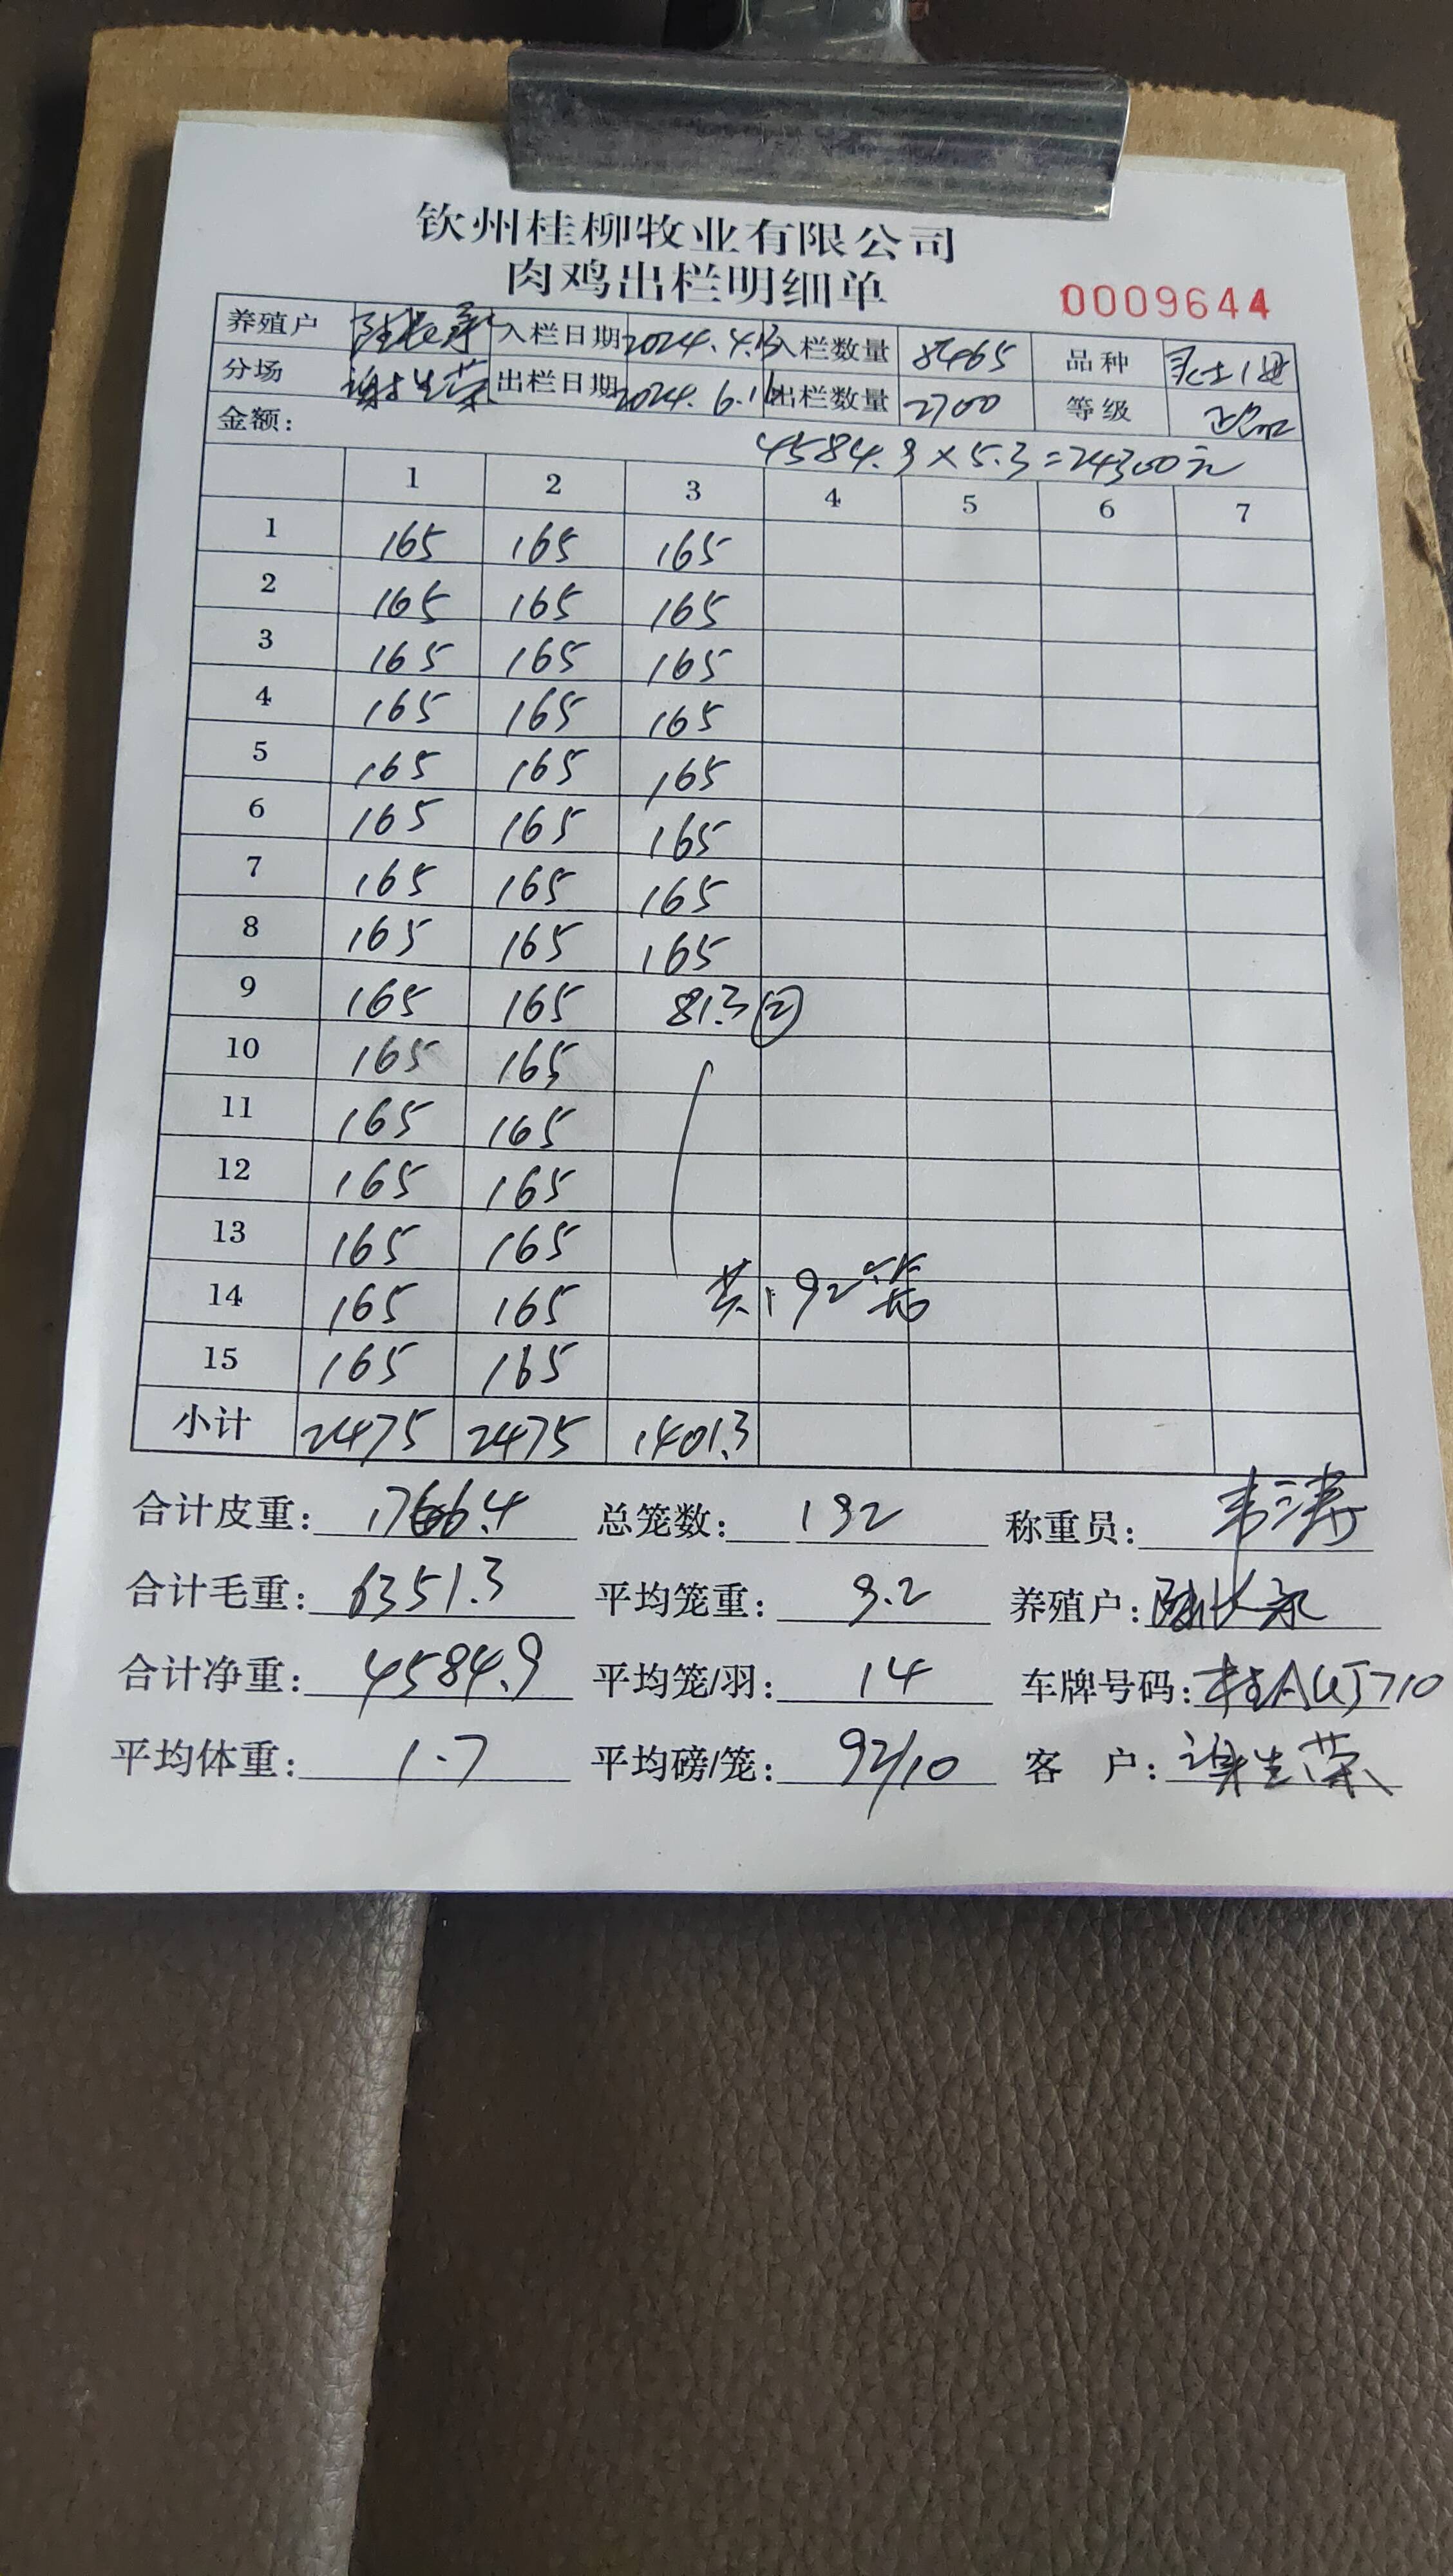 钦州桂柳牧业有限公司
肉鸡出栏明细单
0009644
养殖户 入栏日期 2024.4.13 入栏数量 8465 品种
分场 谢生荣 出栏日期 2024.6.16 出栏数量 2700 等级
金额: 4584.9×5.3=24300元
1 2 3 4 5 6 7
1 165 165 165
2 165 165 165
3 165 165 165
4 165 165 165
5 165 165 165
6 165 165 165
7 165 165 165
8 165 165 165
9 165 165 81.3 ②
10 165 165
11 165 165
12 165 165
13 165 165
14 165 165 共:192笼
15 165 165
小计 2475 2475 1401.3
合计皮重: 1766.4 总笼数: 192 称重员: 韦涛
合计毛重: 6351.3 平均笼重: 9.2 养殖户:
合计净重: 4584.9 平均笼/羽: 14 车牌号码:
平均体重: 1.7 平均磅/笼: 92/10 客 户: 谢生荣